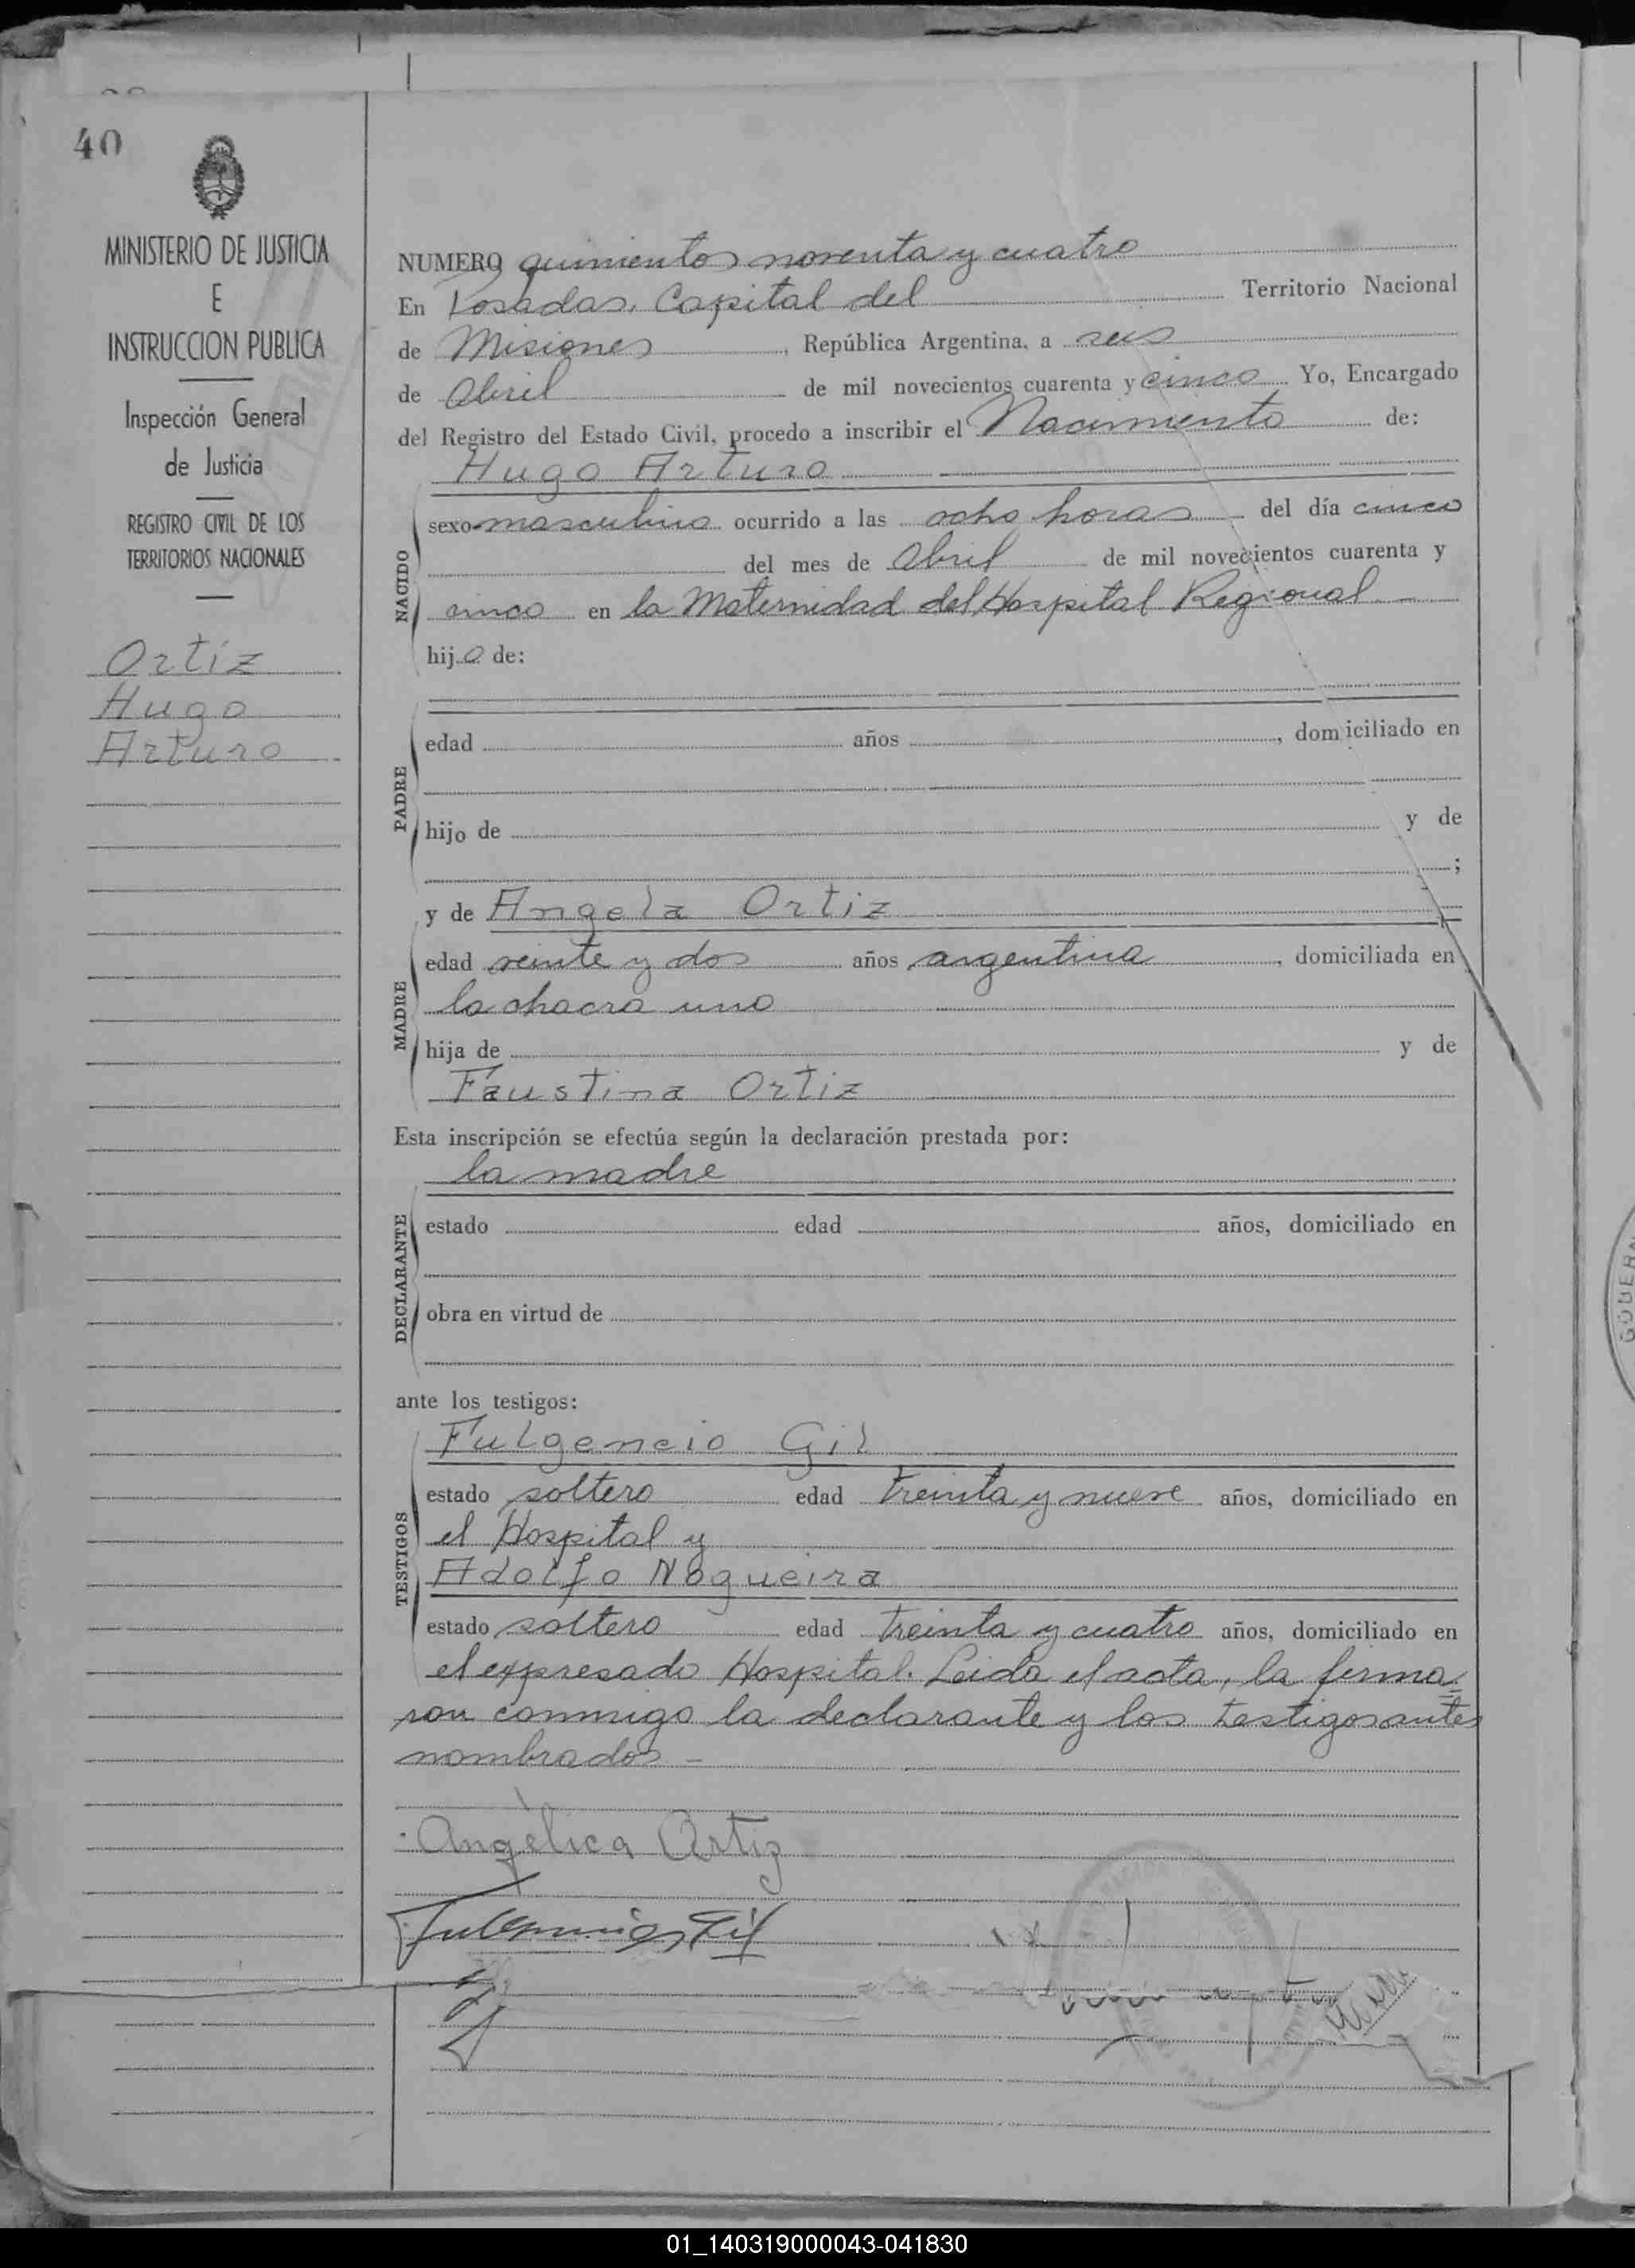 40
MINISTERIO DE JUSTICIA
E
INSTRUCCION PUBLICA
Inspección General
de Justicia
REGISTRO CIVIL DE LOS
TERRITORIOS NACIONALES
Ortíz
Hugo
Arturo
NUMERO quinientos noventa y cuatro
En Posadas, Capital del Territorio Nacional
de Misiones, República Argentina, a seis
de Abril de mil novecientos cuarenta y cinco Yo, Encargado
del Registro del Estado Civil, procedo a inscribir el Nacimiento de:
Hugo Arturo
NACIDO
sexo masculino ocurrido a las ocho horas del día cinco
del mes de Abril de mil novecientos cuarenta y
cinco en la Maternidad del Hospital Regional
hijo de:
PADRE
edad años , domiciliado en
hijo de y de
;
y de Angela Ortiz
MADRE
edad veinte y dos años argentina, domiciliada en
la chacra uno
hija de y de
Faustina Ortiz
Esta inscripción se efectúa según la declaración prestada por:
la madre
DECLARANTE
estado edad años, domiciliado en
obra en virtud de
ante los testigos:
Fulgencio Gil
TESTIGOS
estado soltero edad treinta y nueve años, domiciliado en
el Hospital y
Adolfo Nogueira
estado soltero edad treinta y cuatro años, domiciliado en
el expresado Hospital. Leida el acta, la firma=
ron conmigo la declarante y los testigos antes
nombrados -
Angélica Ortiz
Fulgencio Gil
GOBERN
01_140319000043-041830